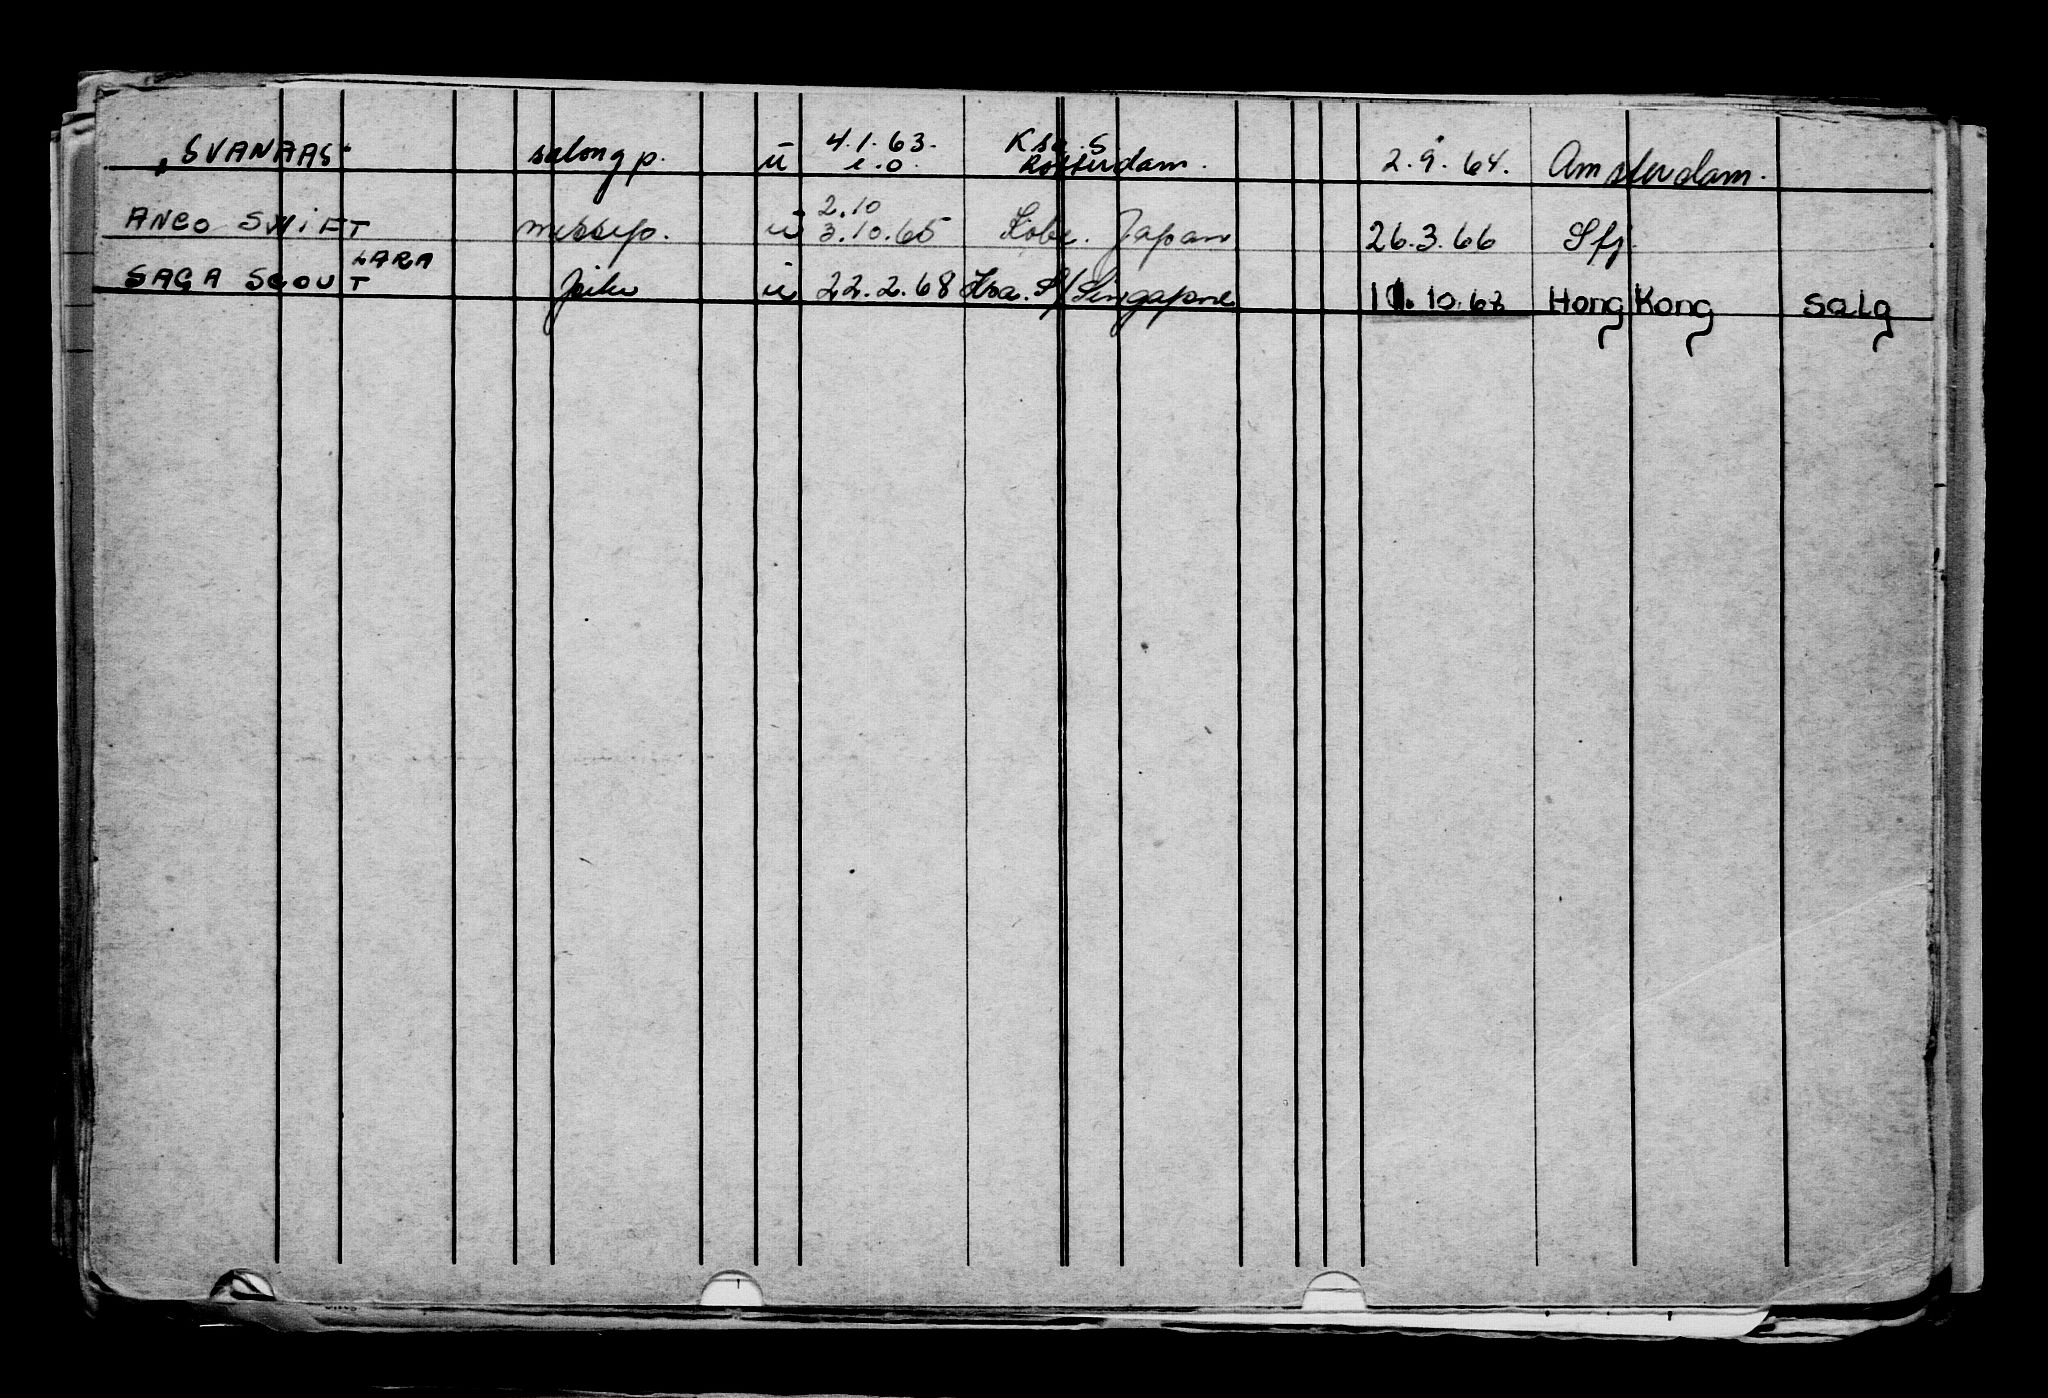 "SVANAAS" salong p. ū 4.1.63. e.o. Ksa. S Rotterdam. 2.9.64. Amsterdam.
ANCO SWIFT messep. ū 2.10 3.10.65 Kobe. Japan 26.3.66 Sfj.
LARA
SAGA SCOUT u 22.2.68 S/Singapore 11.10.68 Hong Kong salg